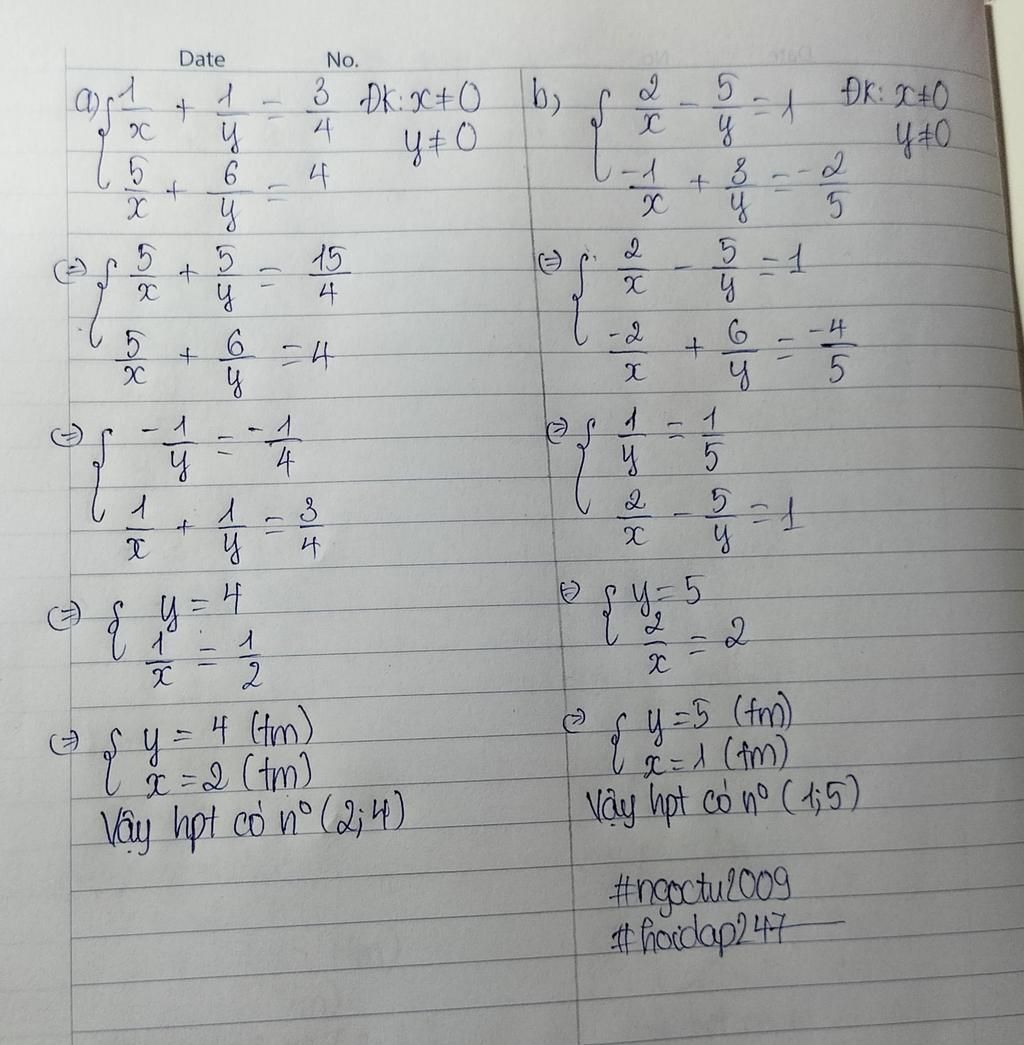 Date No.
a) { 1/x + 1/y = 3/4 ĐK: x ≠ 0
y ≠ 0
5/x + 6/y = 4
(=) { 5/x + 5/y = 15/4
5/x + 6/y = 4
(=) { -1/y = -1/4
1/x + 1/y = 3/4
(=) { y = 4
1/x = 1/2
(=) { y = 4 (tm)
x = 2 (tm)
Vậy hpt có nº (2;4)
b, { 2/x - 5/y = 1 ĐK: x ≠ 0
y ≠ 0
-1/x + 3/y = -2/5
(=) { 2/x - 5/y = 1
-2/x + 6/y = -4/5
(=) { 1/y = 1/5
2/x - 5/y = 1
(=) { y = 5
2/x = 2
(=) { y = 5 (tm)
x = 1 (tm)
Vậy hpt có nº (1;5)
#ngoctu2009
#hoidap247